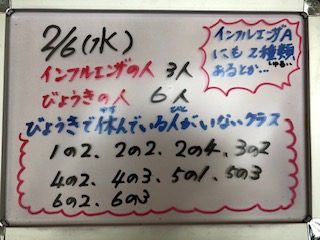 2/6(水)
インフルエンザA
にも2種類
しゅるい
あるとか…
インフルエンザの人 3人
びょうきの人 6人
びょうきで休んでいる人がいないクラス
1の2、2の2、2の4、3の2
4の2、4の3、5の1、5の3
6の2、6の3